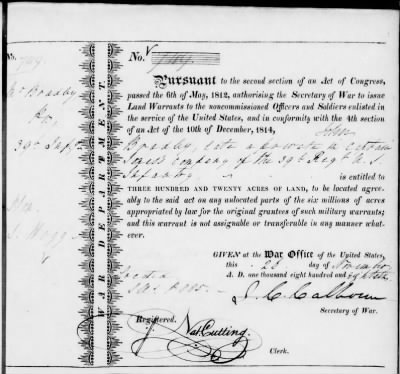 No.
PURSUANT to the second section of an Act of Congress,
passed the 6th of May, 1812, authorising the Secretary of War to issue
Land Warrants to the noncommissioned Officers and Soldiers enlisted in
the service of the United States, and in conformity with the 4th section
of an Act of the 10th of December, 1814, John
Bradby, late a private in Captain
Jones's Company of the 39th Regt U.S.
Infantry
is entitled to
THREE HUNDRED AND TWENTY ACRES OF LAND, to be located agree-
ably to the said act on any unlocated parts of the six millions of acres
appropriated by law for the original grantees of such military warrants;
and this warrant is not assignable or transferable in any manner what-
ever.
GIVEN at the War Office of the United States,
this 23 day of November
A. D. one thousand eight hundred and
J. C. Calhoun
Secretary of War.
Registered.
Nat. Cutting
Clerk.
WAR DEPARTMENT.
No.
Bradby
39th Inft